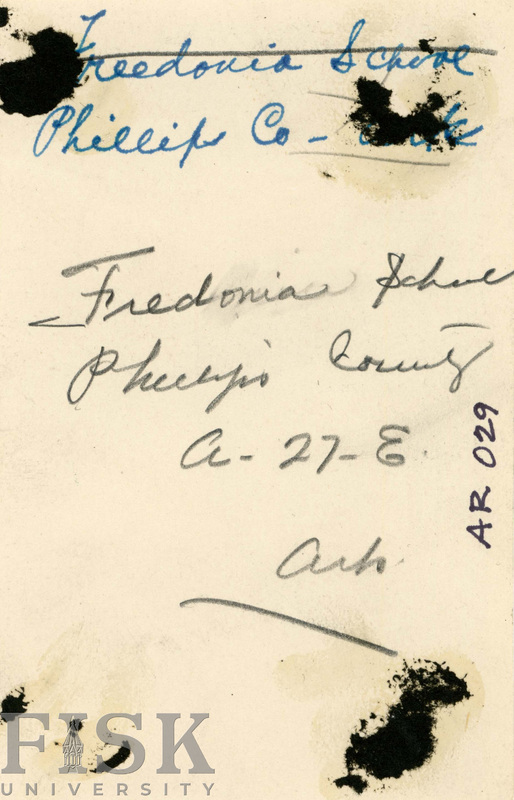 Freedonia School
Phillips Co - Ark
Fredonia School
Phillips County
A-27-E.
Ark.
AR 029
FISK
UNIVERSITY